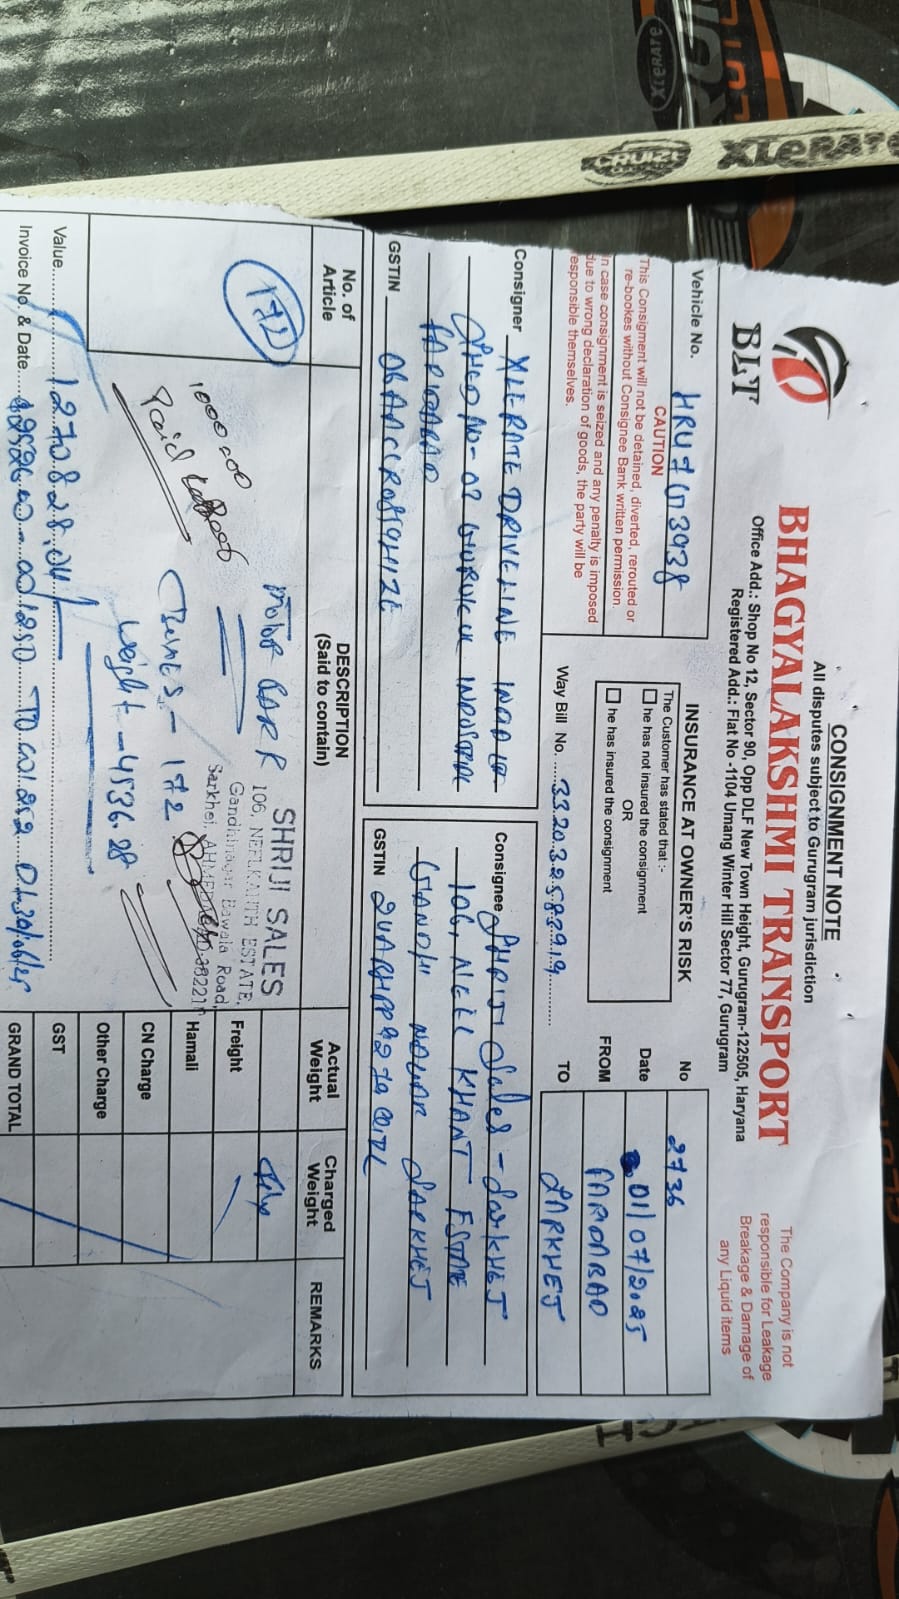 CONSIGNMENT NOTE
All disputes subject to Gurugram jurisdiction
BLT
BHAGYALAKSHMI TRANSPORT
Office Add.: Shop No 12, Sector 90, Opp DLF New Town Height, Gurugram-122505, Haryana
Registered Add.: Flat No -1104 Umang Winter Hill Sector 77, Gurugram
The Company is not
responsible for Leakage
Breakage & Damage of
any Liquid items
Vehicle No. HRU7G3938
CAUTION
This Consigment will not be detained, diverted, rerouted or
re-bookes without Consignee Bank written permission.
In case consignment is seized and any penalty is imposed
due to wrong declaration of goods, the party will be
esponsible themselves.
INSURANCE AT OWNER'S RISK
The Customer has stated that :-
he has not insured the consignment
OR
he has insured the consignment
Way Bill No.
No 2736
Date 01/07/2025
FROM
TO SARKHEJ
Consigner XLERATE DRIVELINE INDIA
GSTIN
Consignee SHRIJI Sales - Sarkhej
106, NEEL KHANT ESTATE
GANDHI NAGAR SARKHEJ
GSTIN
No. of
Article
DESCRIPTION
(Said to contain)
Actual
Weight
Charged
Weight
REMARKS
172
MOTOR PARR
Paid
- 172
Weight - 4536.28
SHRIJI SALES
106, NEELKANTH ESTATE,
Gandhinagar Bawala Road,
Sarkhej, AHMEDABAD-38221
Freight
Hamali
CN Charge
Other Charge
GST
GRAND TOTAL
Value 1270828.04/
Invoice No. & Date
XLERATE
CRUIZE
XLERATE